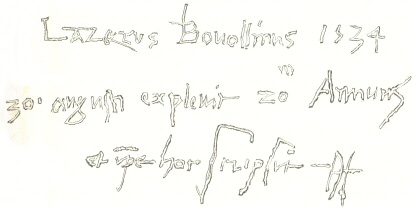 Lazarus Bouollinus 1534
30· augusti expleuit 20 Annum
et ipse hoc scripsit